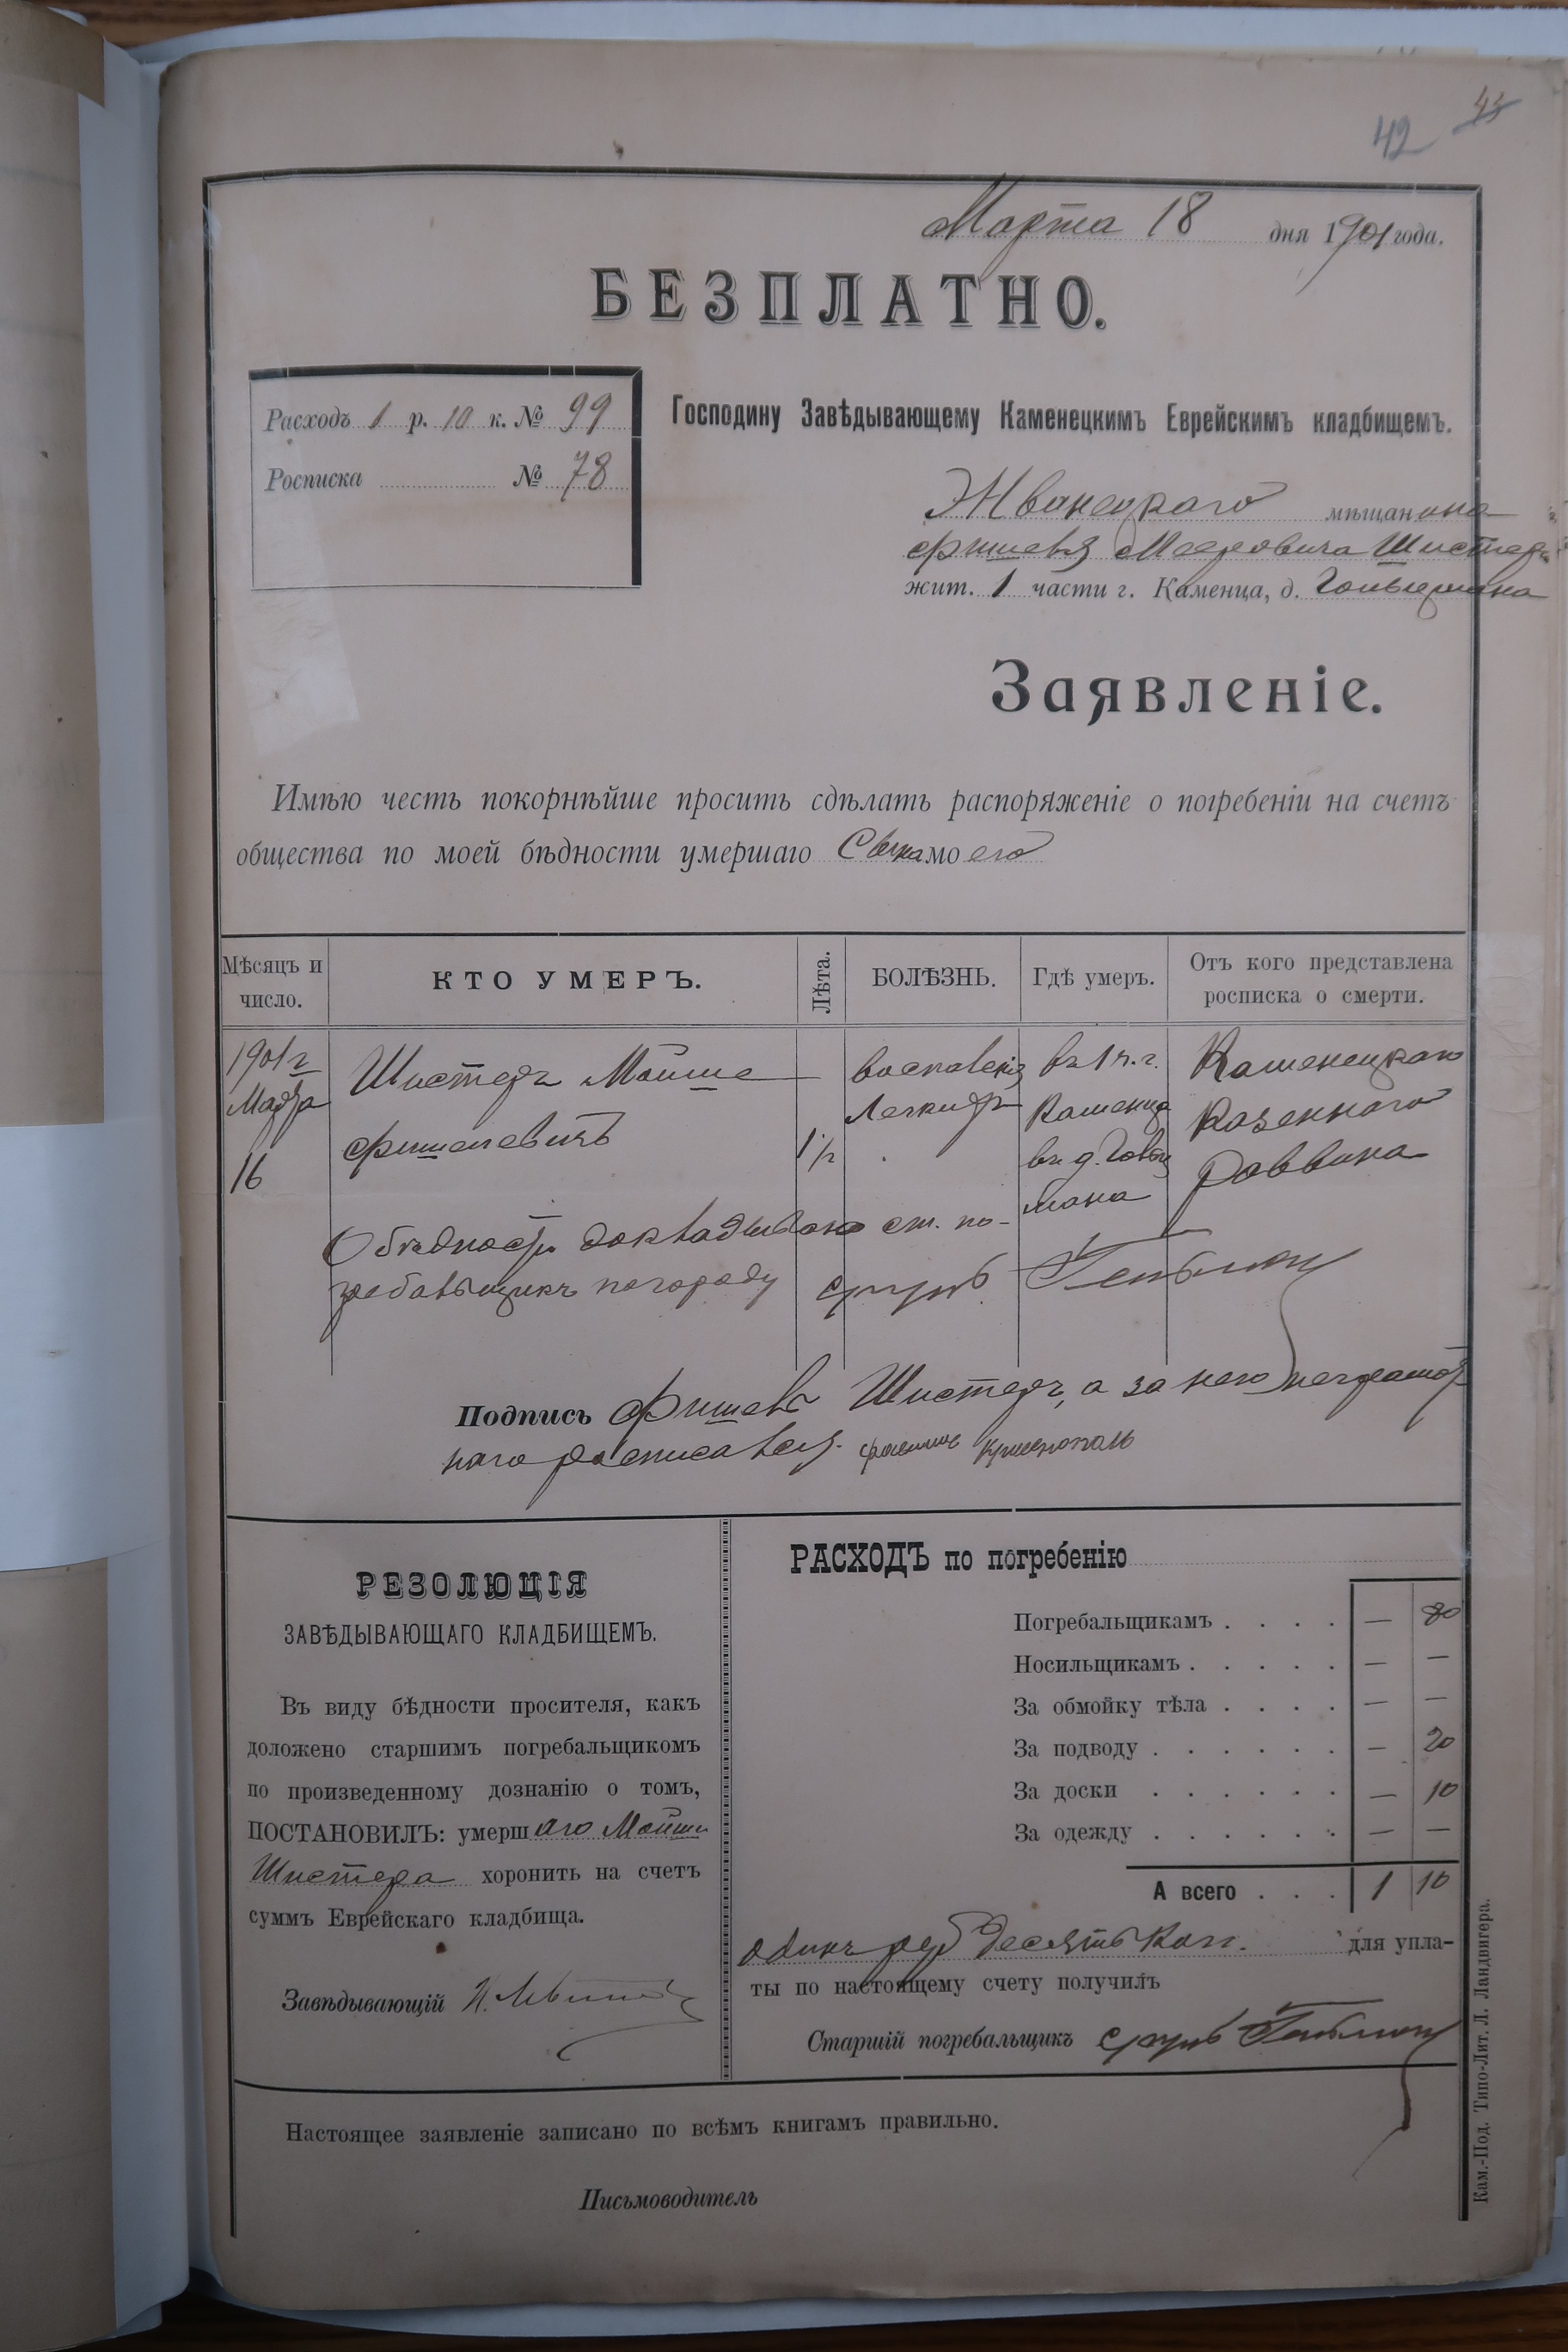 42 43
Марта 18 дня 1901 года.
БЕЗПЛАТНО.
Расходъ 1 р. 10 к. № 99
Росписка № 78
Господину Завѣдывающему Каменецкимъ Еврейскимъ кладбищемъ.
Жванецкаго мѣщанина
Фишель Мееровича Шистеръ
жит. 1 части г. Каменца, д.
Заявленіе.
Имѣю честь покорнѣйше просить сдѣлать распоряженіе о погребеніи на счетъ
общества по моей бѣдности умершаго Сына моего
Мѣсяцъ и число.
КТО УМЕРЪ.
Лѣта.
БОЛѢЗНЬ.
Гдѣ умеръ.
Отъ кого представлена росписка о смерти.
1901 г
Марта
16
Шистеръ Мойше
Фишелевичъ
воспаленія
Легкихъ
въ 1 ч. г.
Каменца
въ д.
мана
Каменецкаго
Казеннаго
Раввина
О бѣдности докладывано ст. по-
гребальщикъ по городу
Подпись Фишель Шистеръ, а за него неграмот
наго росписался
РЕЗОЛЮЦІЯ
ЗАВѢДЫВАЮЩАГО КЛАДБИЩЕМЪ.
Въ виду бѣдности просителя, какъ
доложено старшимъ погребальщикомъ
по произведенному дознанію о томъ,
ПОСТАНОВИЛЪ: умершаго Мойши
Шистера хоронить на счетъ
суммъ Еврейскаго кладбища.
Завѣдывающій
РАСХОДЪ по погребенію
Погребальщикамъ . . . . — 80
Носильщикамъ . . . . . — —
За обмойку тѣла . . . . — —
За подводу . . . . . . — 20
За доски . . . . . . — 10
За одежду . . . . . . — —
А всего . . . 1 10
одинъ руб десять коп. для упла-
ты по настоящему счету получилъ
Старшій погребальщикъ
Настоящее заявленіе записано по всѣмъ книгамъ правильно.
Письмоводитель
Кам.-Под. Типо-Лит. Л. Ландвигера.